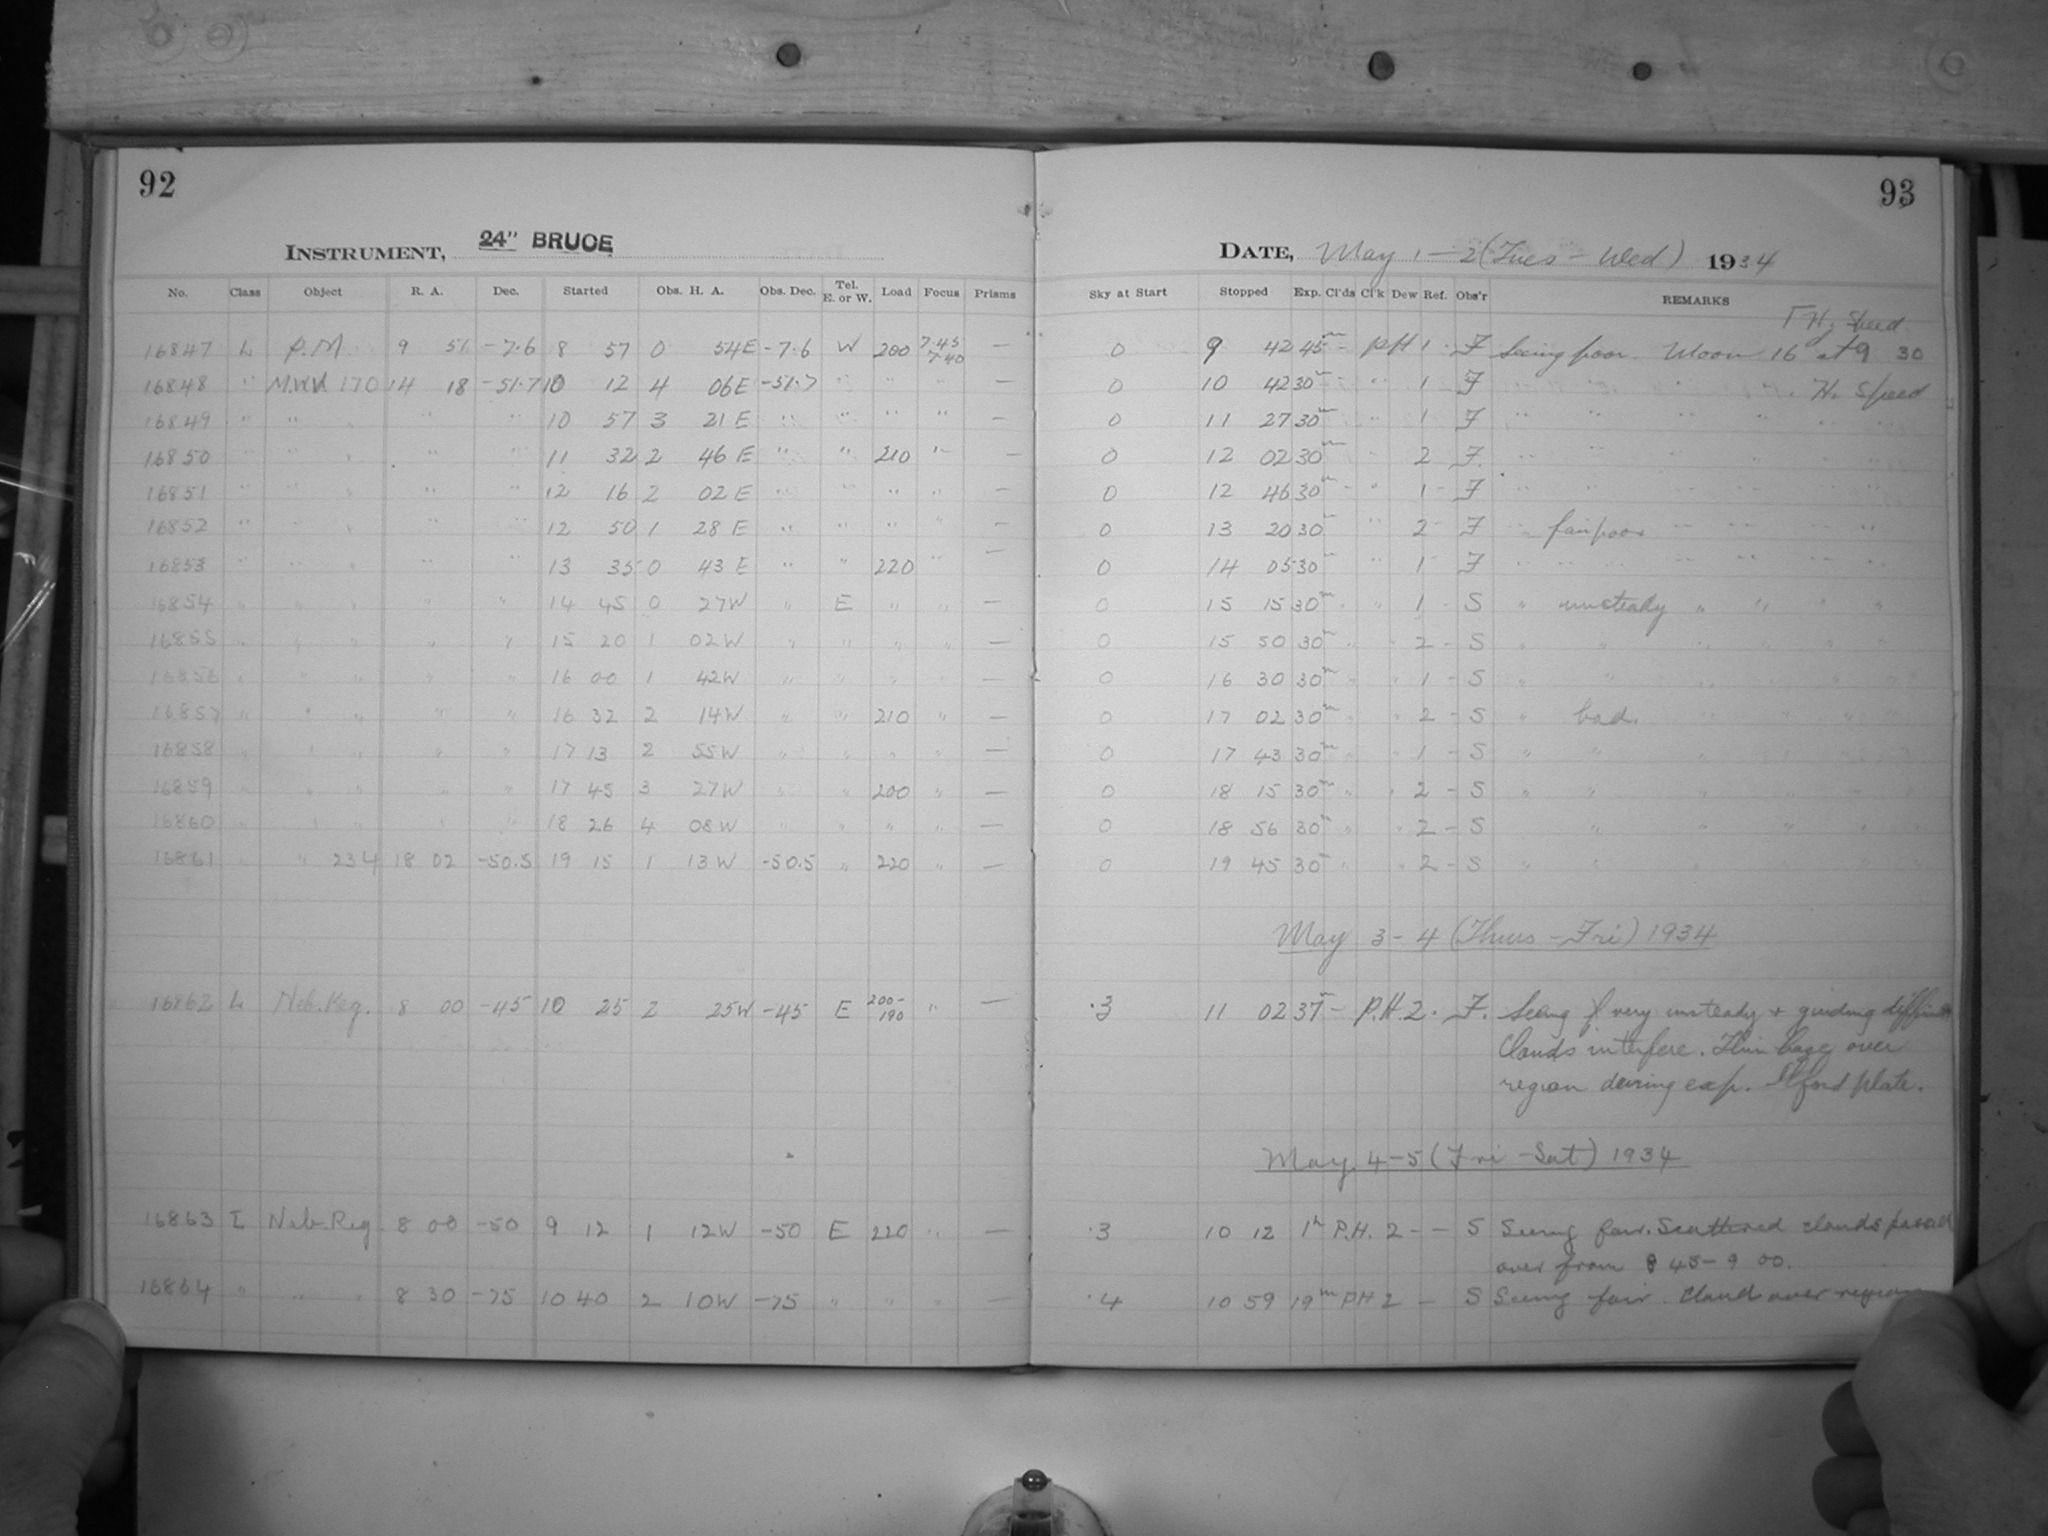 92
INSTRUMENT, 24" BRUCE
No. Class Object R. A. Dec. Started Obs. H. A. Obs. Dec. Tel. E. or W. Load Focus Prisms
16847 L P.M. 9 51 -7.6 8 57 0 54E -7.6 W 200 7.45 7.40 —
16848 " M.W.V 170 14 18 -51.7 10 12 4 06E -51.7 " " " —
16849 " " " " " 10 57 3 21E " " " " —
16850 " " " " " 11 32 2 46E " " 210 " —
16851 " " " " " 12 16 2 02E " " " " —
16852 " " " " " 12 50 1 28E " " " " —
16853 " " " " " 13 35 0 43E " " 220 " —
16854 " " " " " 14 45 0 27W " E " " —
16855 " " " " " 15 20 1 02W " " " " —
16856 " " " " " 16 00 1 42W " " " " —
16857 " " " " " 16 32 2 14W " " 210 " —
16858 " " " " " 17 13 2 55W " " " " —
16859 " " " " " 17 45 3 27W " " 200 " —
16860 " " " " " 18 26 4 08W " " " " —
16861 " " 234 18 02 -50.5 19 15 1 13W -50.5 " 220 " —
16862 L Neb. Reg. 8 00 -45 10 25 2 25W -45 E 200-190 " —
16863 I Neb. Reg 8 00 -50 9 12 1 12W -50 E 220 " —
16864 " " " 8 30 -75 10 40 2 10W -75 " " " —
93
DATE, May 1-2 (Tues - Wed) 1934
Sky at Start Stopped Exp. Cl'ds Cl'k Dew Ref. Obs'r REMARKS
H. Speed
0 9 42 45m - PH 1 - F Seeing poor. Moon 16 at 9 30
0 10 42 30m " 1 - F H. Speed
0 11 27 30m " 1 - F " " " " " "
0 12 02 30m " 2 F. " " " " " "
0 12 46 30m - " 1 - F " " " " " "
0 13 20 30m " 2 - F " fair poor " " " "
0 14 05 30m " 1 - F " " " " " "
0 15 15 30m " " 1 - S " unsteady " " " "
0 15 50 30m " " 2 - S " " " " " "
0 16 30 30m " " 1 - S " " " " " "
0 17 02 30m " " 2 - S " bad. " " " "
0 17 43 30m " " 1 - S " " " " " "
0 18 15 30m " " 2 - S " " " " " "
0 18 56 30m " " 2 - S " " " "
0 19 45 30m " " 2 - S " " " " " "
May 3-4 (Thurs - Fri) 1934
.3 11 02 37m - P.H. 2 - F. Seeing very unsteady + guiding
Clouds interfere. Thin haze over
region during exp. Ilford plate.
May 4-5 (Fri - Sat) 1934
.3 10 12 1h P.H. 2 - - S Seeing fair. Scattered clouds passed
over from 8 45 - 9 00.
.4 10 59 19m PH 2 - S Seeing fair. Cloud over region